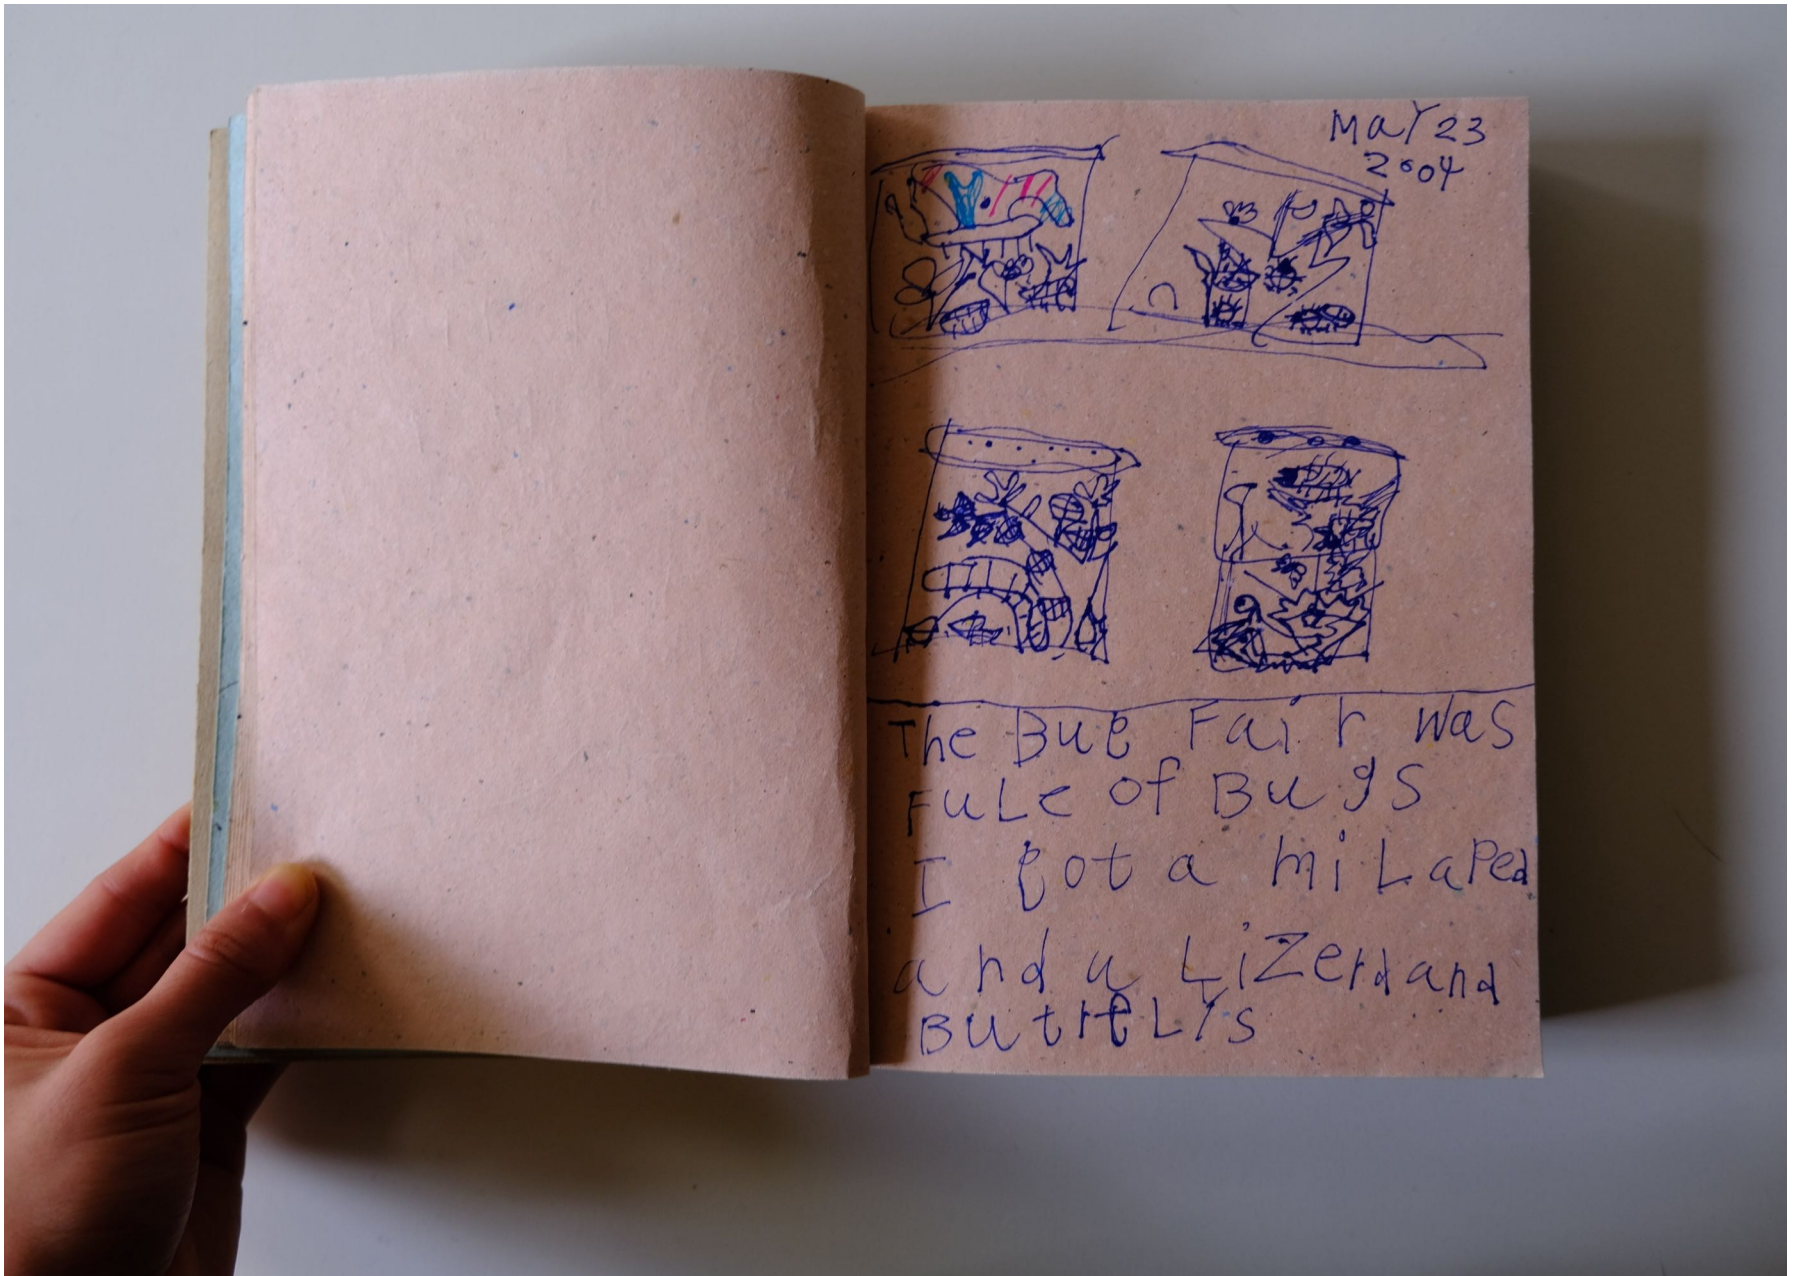 MaY 23
2004
The Bug Fair was
FuLe of Bugs
I got a miLaPed
and a LiZerd and
ButrfLys